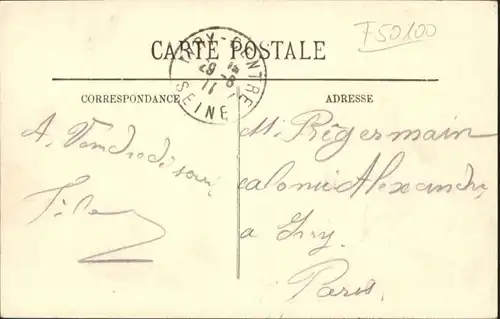 F50100
CARTE POSTALE
IVRY-CENTRE
SEINE
CORRESPONDANCE
ADRESSE
A Vendredi soir
M. Régermain
colonie Alexandre
a Ivry.
Paris.